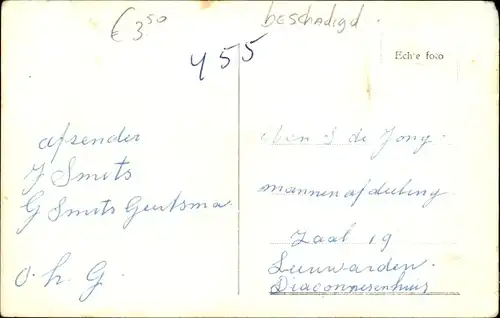 € 3,50
beschadigd.
455
Echte foto
afzender
J Smits
G Smits Geertsma
o. h. G.
S de Jong.
mannenafdeeling
Zaal 19
Leeuwarden.
Diaconnesenhuis